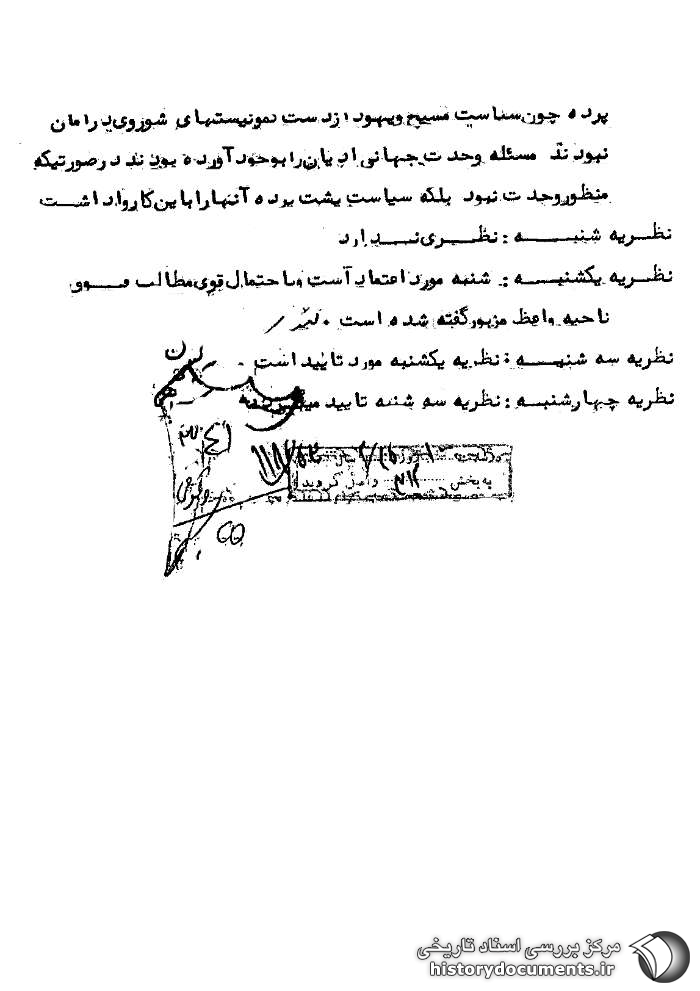 پرده چون سیاست مسیح و یهود از دست کمونیستهای شوروی در امان
نبودند مسئله وحدت جهانی ادیان را بوجود آورده بودند در صورتیکه
منظور وحدت نبود بلکه سیاست پشت پرده آنها را باین کار واداشت
نظریه شنبه : نظری ندارد
نظریه یکشنبه : شنبه مورد اعتماد است و با احتمال قوی مطالب فوق
ناحیه واعظ مزبور گفته شده است .
نظریه سه شنبه : نظریه یکشنبه مورد تایید است .
نظریه چهارشنبه : نظریه سه شنبه تایید میگردد
روز سال
به بخش ۳۱۲ واصل گردید
مرکز بررسی اسناد تاریخی
historydocuments.ir